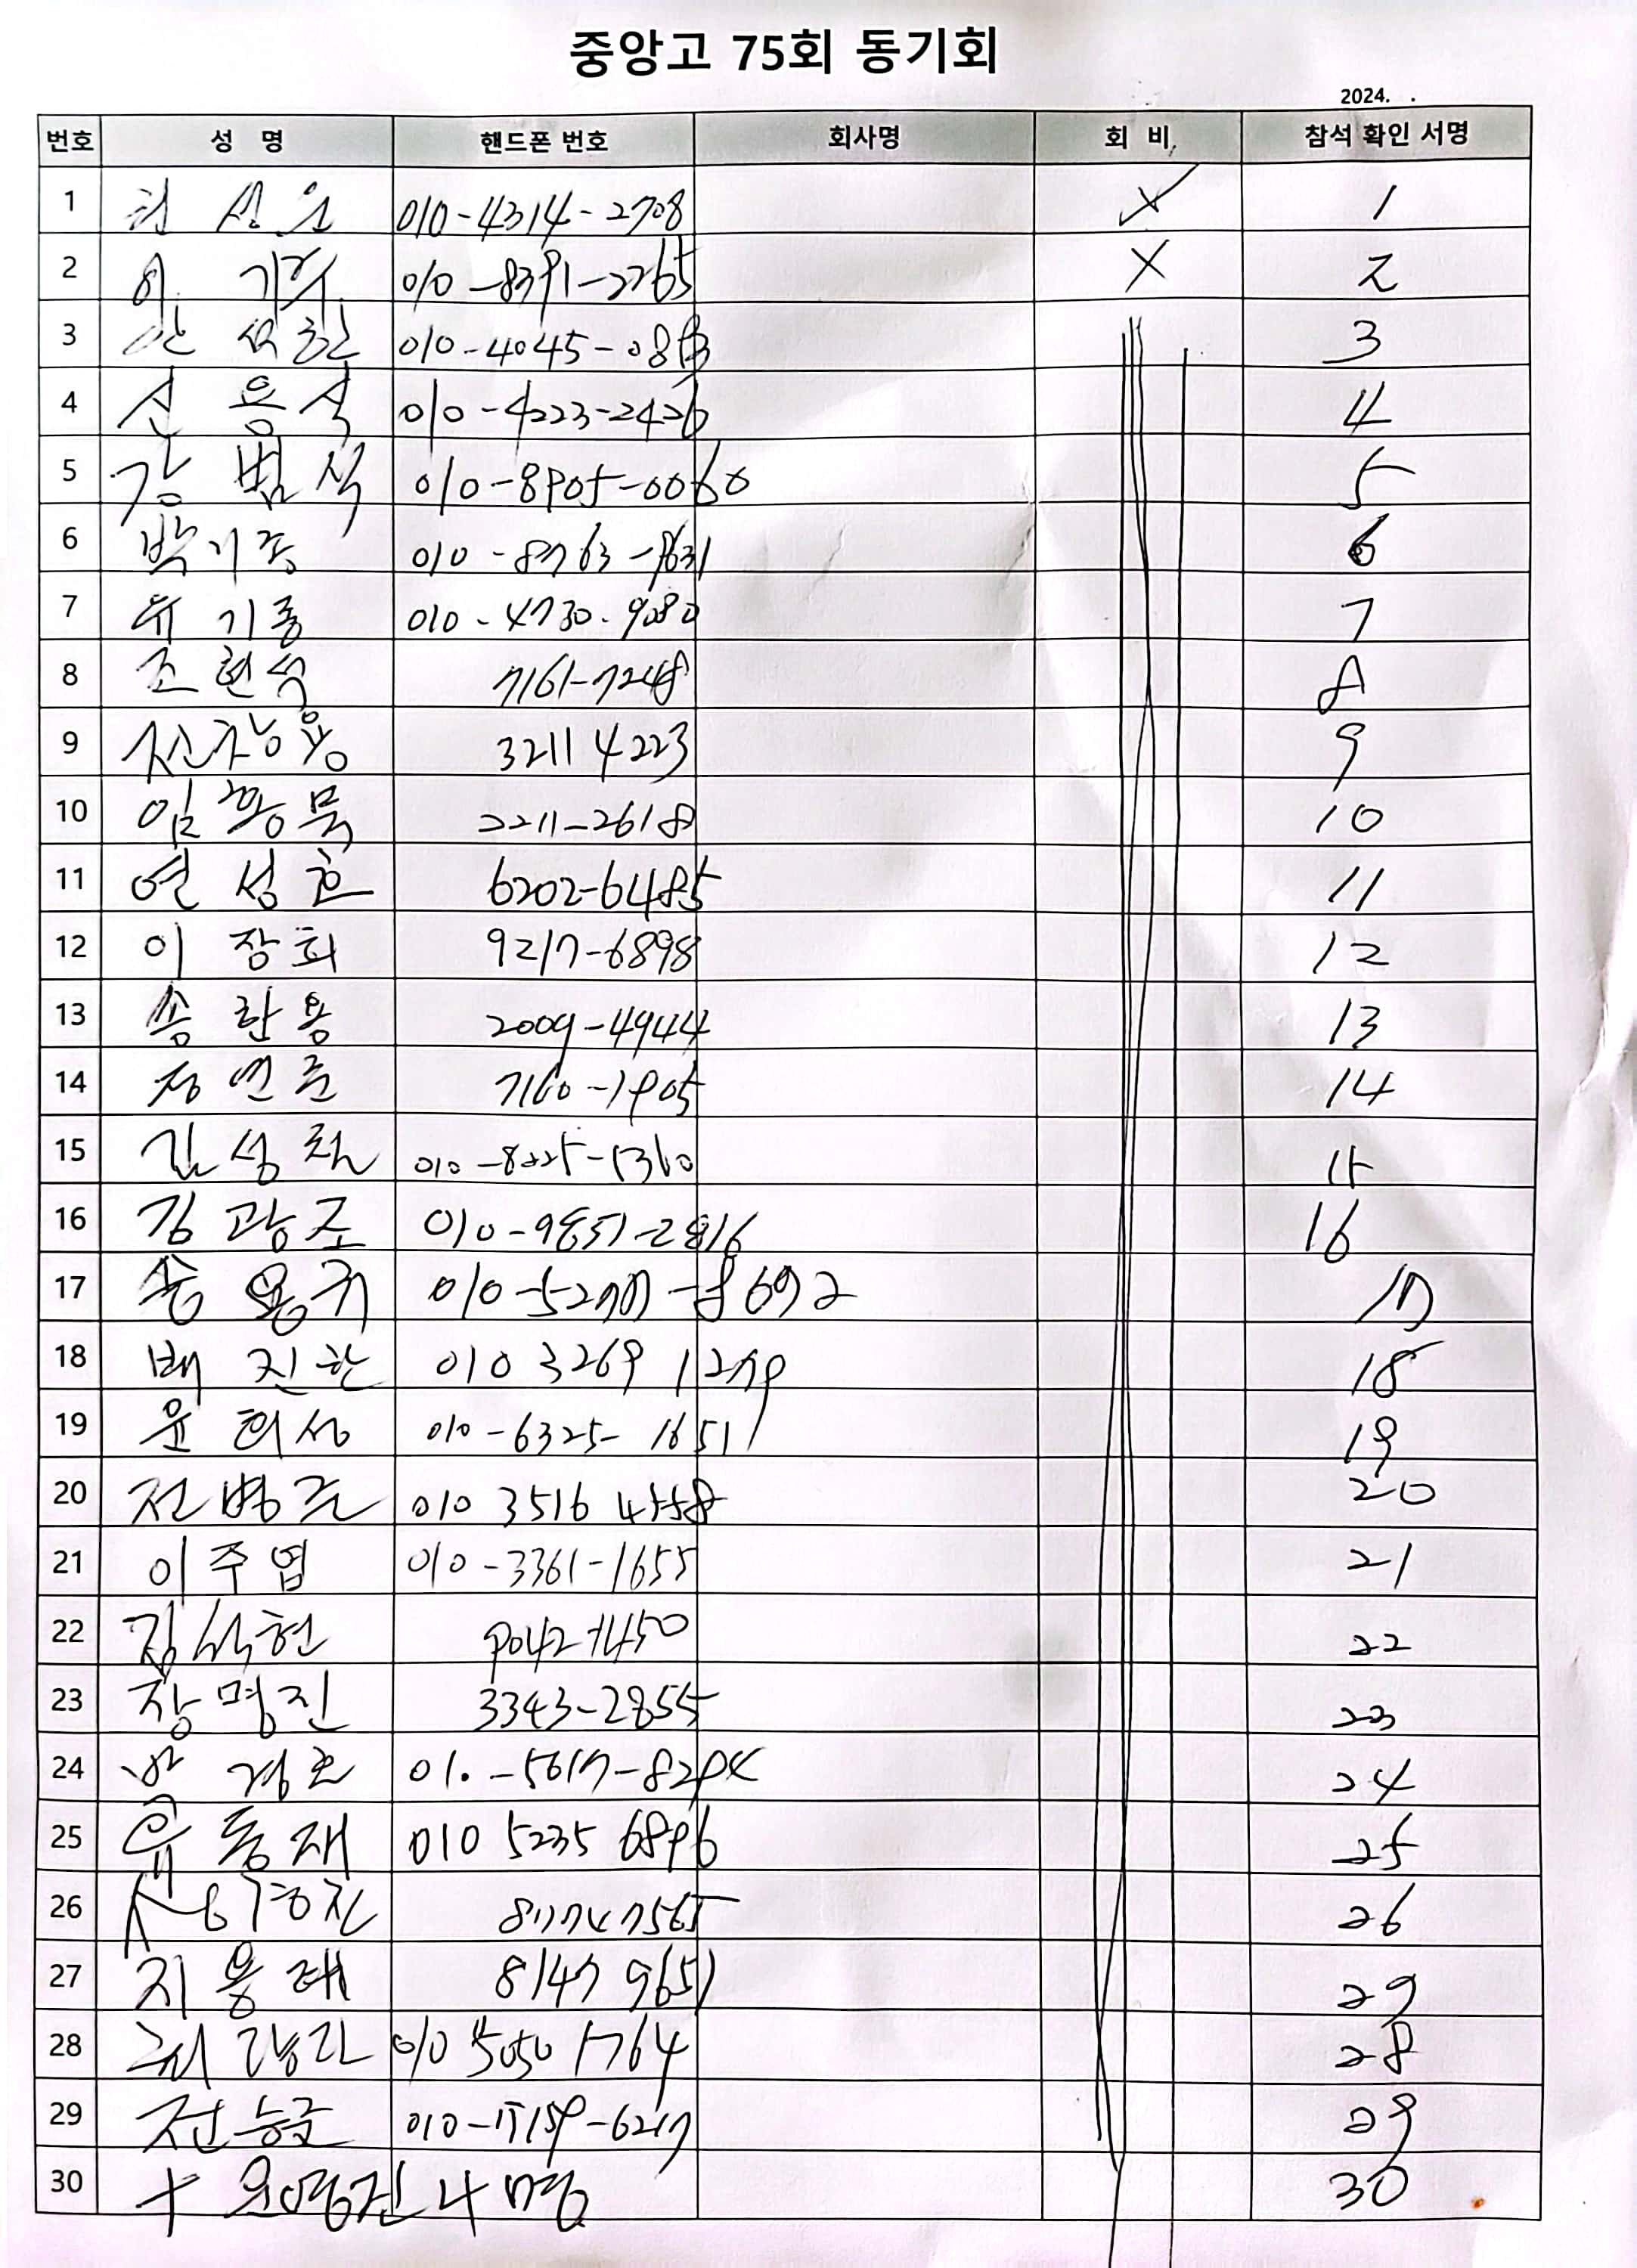 중앙고 75회 동기회
2024. .
번호 성 명 핸드폰 번호 회사명 회 비 참석 확인 서명
1 010-4314-2708 1
2 기 010-8391-2765 2
3 안 석환 010-4045- 3
4 신 용 석 010-4223-2426 4
5 강 범 식 010-8905-0060 5
6 박기종 010-8763- 6
7 유 기 종 010-4730-9080 7
8 조 현 석 7161-7248 8
9 신창용 3211 4223 9
10 임 황 묵 2211-2618 10
11 연 성 흠 6202-6485 11
12 이 장 희 9217-6898 12
13 송 한 용 2009-4944 13
14 정 연 준 7160-1905 14
15 김 성 010-8225-5360 15
16 김 광 조 010-9851-2816 16
17 송 용 귀 010-5277-8692 17
18 배 진 한 010 3269 1279 18
19 윤 희 성 010-6325-1651 19
20 전 병 준 010 3516 20
21 이 주 엽 010-3361-1655 21
22 김석현 9042-1450 22
23 장 명 진 3343-2855 23
24 경 010-5617-8294 24
25 유 동 재 010 5235 6896 25
26 8774 7565 26
27 지 용 태 8147 9651 29
28 010 5050 1764 28
29 전 승준 29
30 + 윤영진 4 명 30